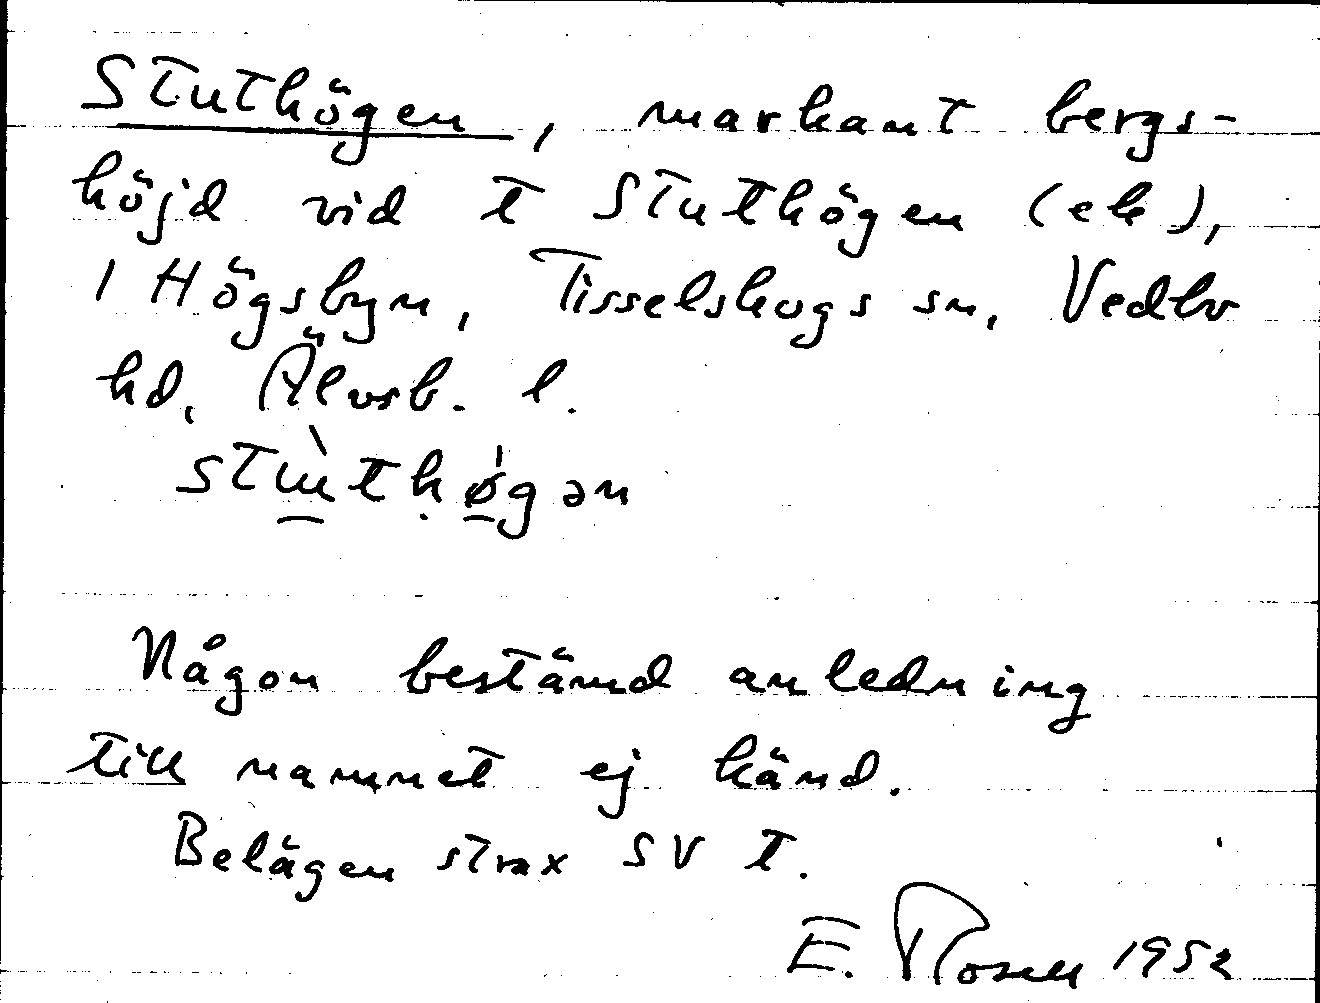 Stuthögen, markant bergs-
höjd vid t Stuthögen (ek),
1 Högsbyn, Tisselskogs sn, Vedbo
hd, Älvsb. l.
stùthǿgən
Någon bestämd anledning
till namnet ej känd.
Belägen strax SV t.
E. Rosell 1952